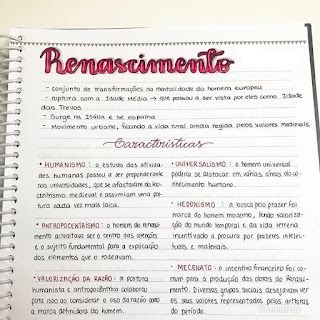 Renascimento
· Conjunto de transformações na mentalidade do homem europeu
· ruptura com a Idade Média → que passou a ser vista por eles como Idade
das Trevas
· Surge na Itália e se espalha
· Movimento urbano, ficando a vida rural ainda regida pelos valores medievais.
Características
· HUMANISMO: o estudo das ativida-
des humanas passou a ser preponderante
nas universidades, que se afastaram do teo-
centrismo medieval e assumiram uma pos-
tura cada vez mais laica.
· ANTROPOCENTRISMO: o homem do renasci-
mento acreditava ser o centro das atenções
e o sujeito fundamental para a explicação
dos elementos que o rodeavam.
· VALORIZAÇÃO DA RAZÃO: a postura
humanista e antropocêntrica colabora
para isso ao considerar o uso da razão como
a marca definidora do homem.
· UNIVERSALISMO: o homem universal
poderia se destacar em várias áreas do co-
nhecimento humano.
· HEDONISMO: a busca pelo prazer foi
marca do homem moderno, tendo valoriza-
ção do mundo temporal e da vida terrena
incentivado a procura por prazeres intelec-
tuais e materiais.
· MECENATO: o incentivo financeiro foi co-
mum para a produção das obras do Renasci-
mento. Diversos grupos sociais desejavam ver
os seus valores representados pelos artistas
do período.